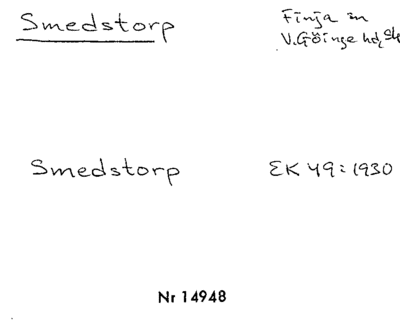 Smedstorp Finja sn
V. Göinge hd, Sk
Smedstorp EK 49: 1930
Nr 14948